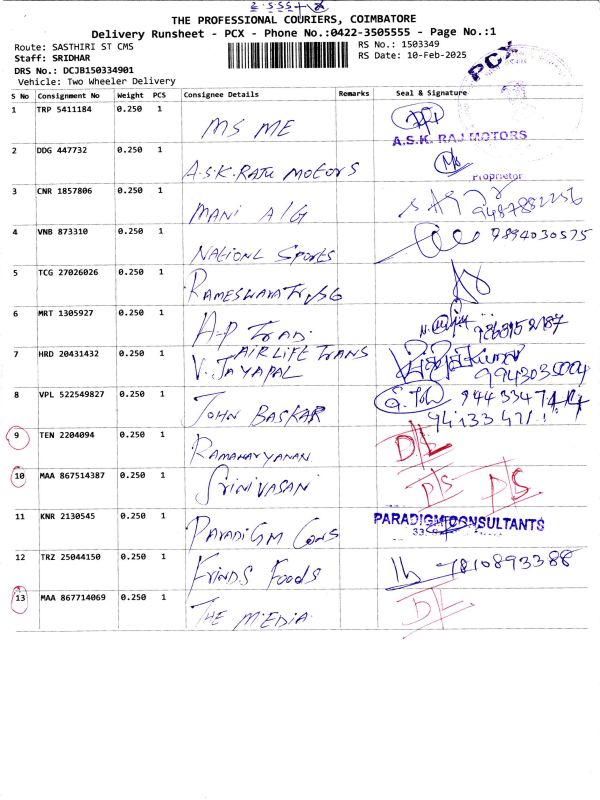 THE PROFESSIONAL COURIERS, COIMBATORE
Delivery Runsheet - PCX - Phone No.:0422-3505555 - Page No.:1
Route: SASTHIRI ST CMS RS No.: 1503349
Staff: SRIDHAR RS Date: 10-Feb-2025
DRS No.: DCJB150334901
Vehicle: Two Wheeler Delivery
PCX
S No Consignment No Weight PCS Consignee Details Remarks Seal & Signature
1 TRP 5411184 0.250 1 MS ME
A.S.K. RAJ MOTORS
2 DDG 447732 0.250 1 A.S.K.RAJU MOTORS
Proprietor
3 CNR 1857806 0.250 1 MANI A/G 9487882256
4 VNB 873310 0.250 1 NATIONL SPORTS 9894030575
5 TCG 27026026 0.250 1
6 MRT 1305927 0.250 1 A-P TRAD.
AIRLIFE TRANS
7 HRD 20431432 0.250 1 V. JAYAPAL
8 VPL 522549827 0.250 1 JOHN BASKAR
9 TEN 2204094 0.250 1 RAMANARYANAN D/L
10 MAA 867514387 0.250 1 SRINIVASAN D/S D/S
11 KNR 2130545 0.250 1 PARADIGM CONS PARADIGM CONSULTANTS
12 TRZ 25044150 0.250 1 FRINDS FOODS 7810893388
13 MAA 867714069 0.250 1 THE MEDIA D/L